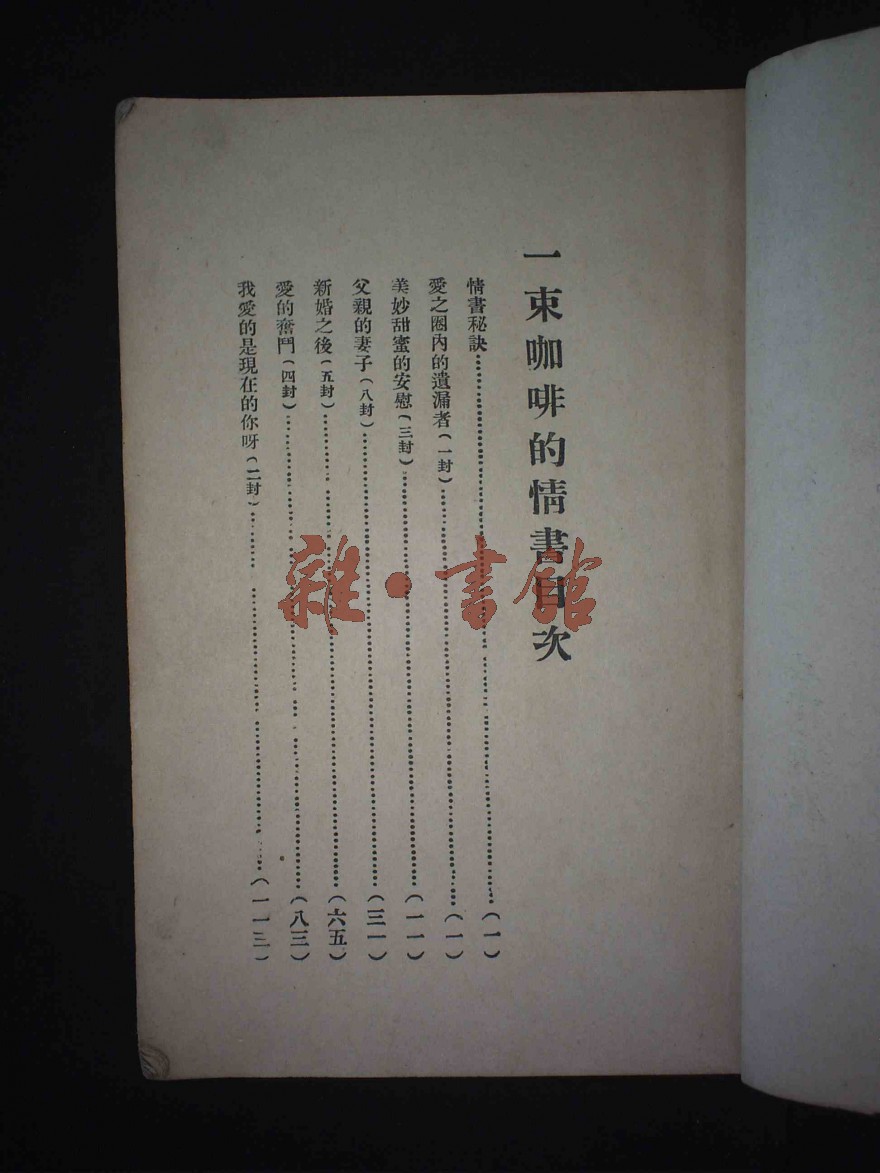 一束咖啡的情書目次
情書秘訣……(一)
愛之圈內的遺漏者(一封)……(一)
美妙甜蜜的安慰(三封)……(一一)
父親的妻子(八封)……(三一)
新婚之後(五封)……(六五)
愛的奮鬥(四封)……(八三)
我愛的是現在的你呀(二封)……(一一三)
雜·書館